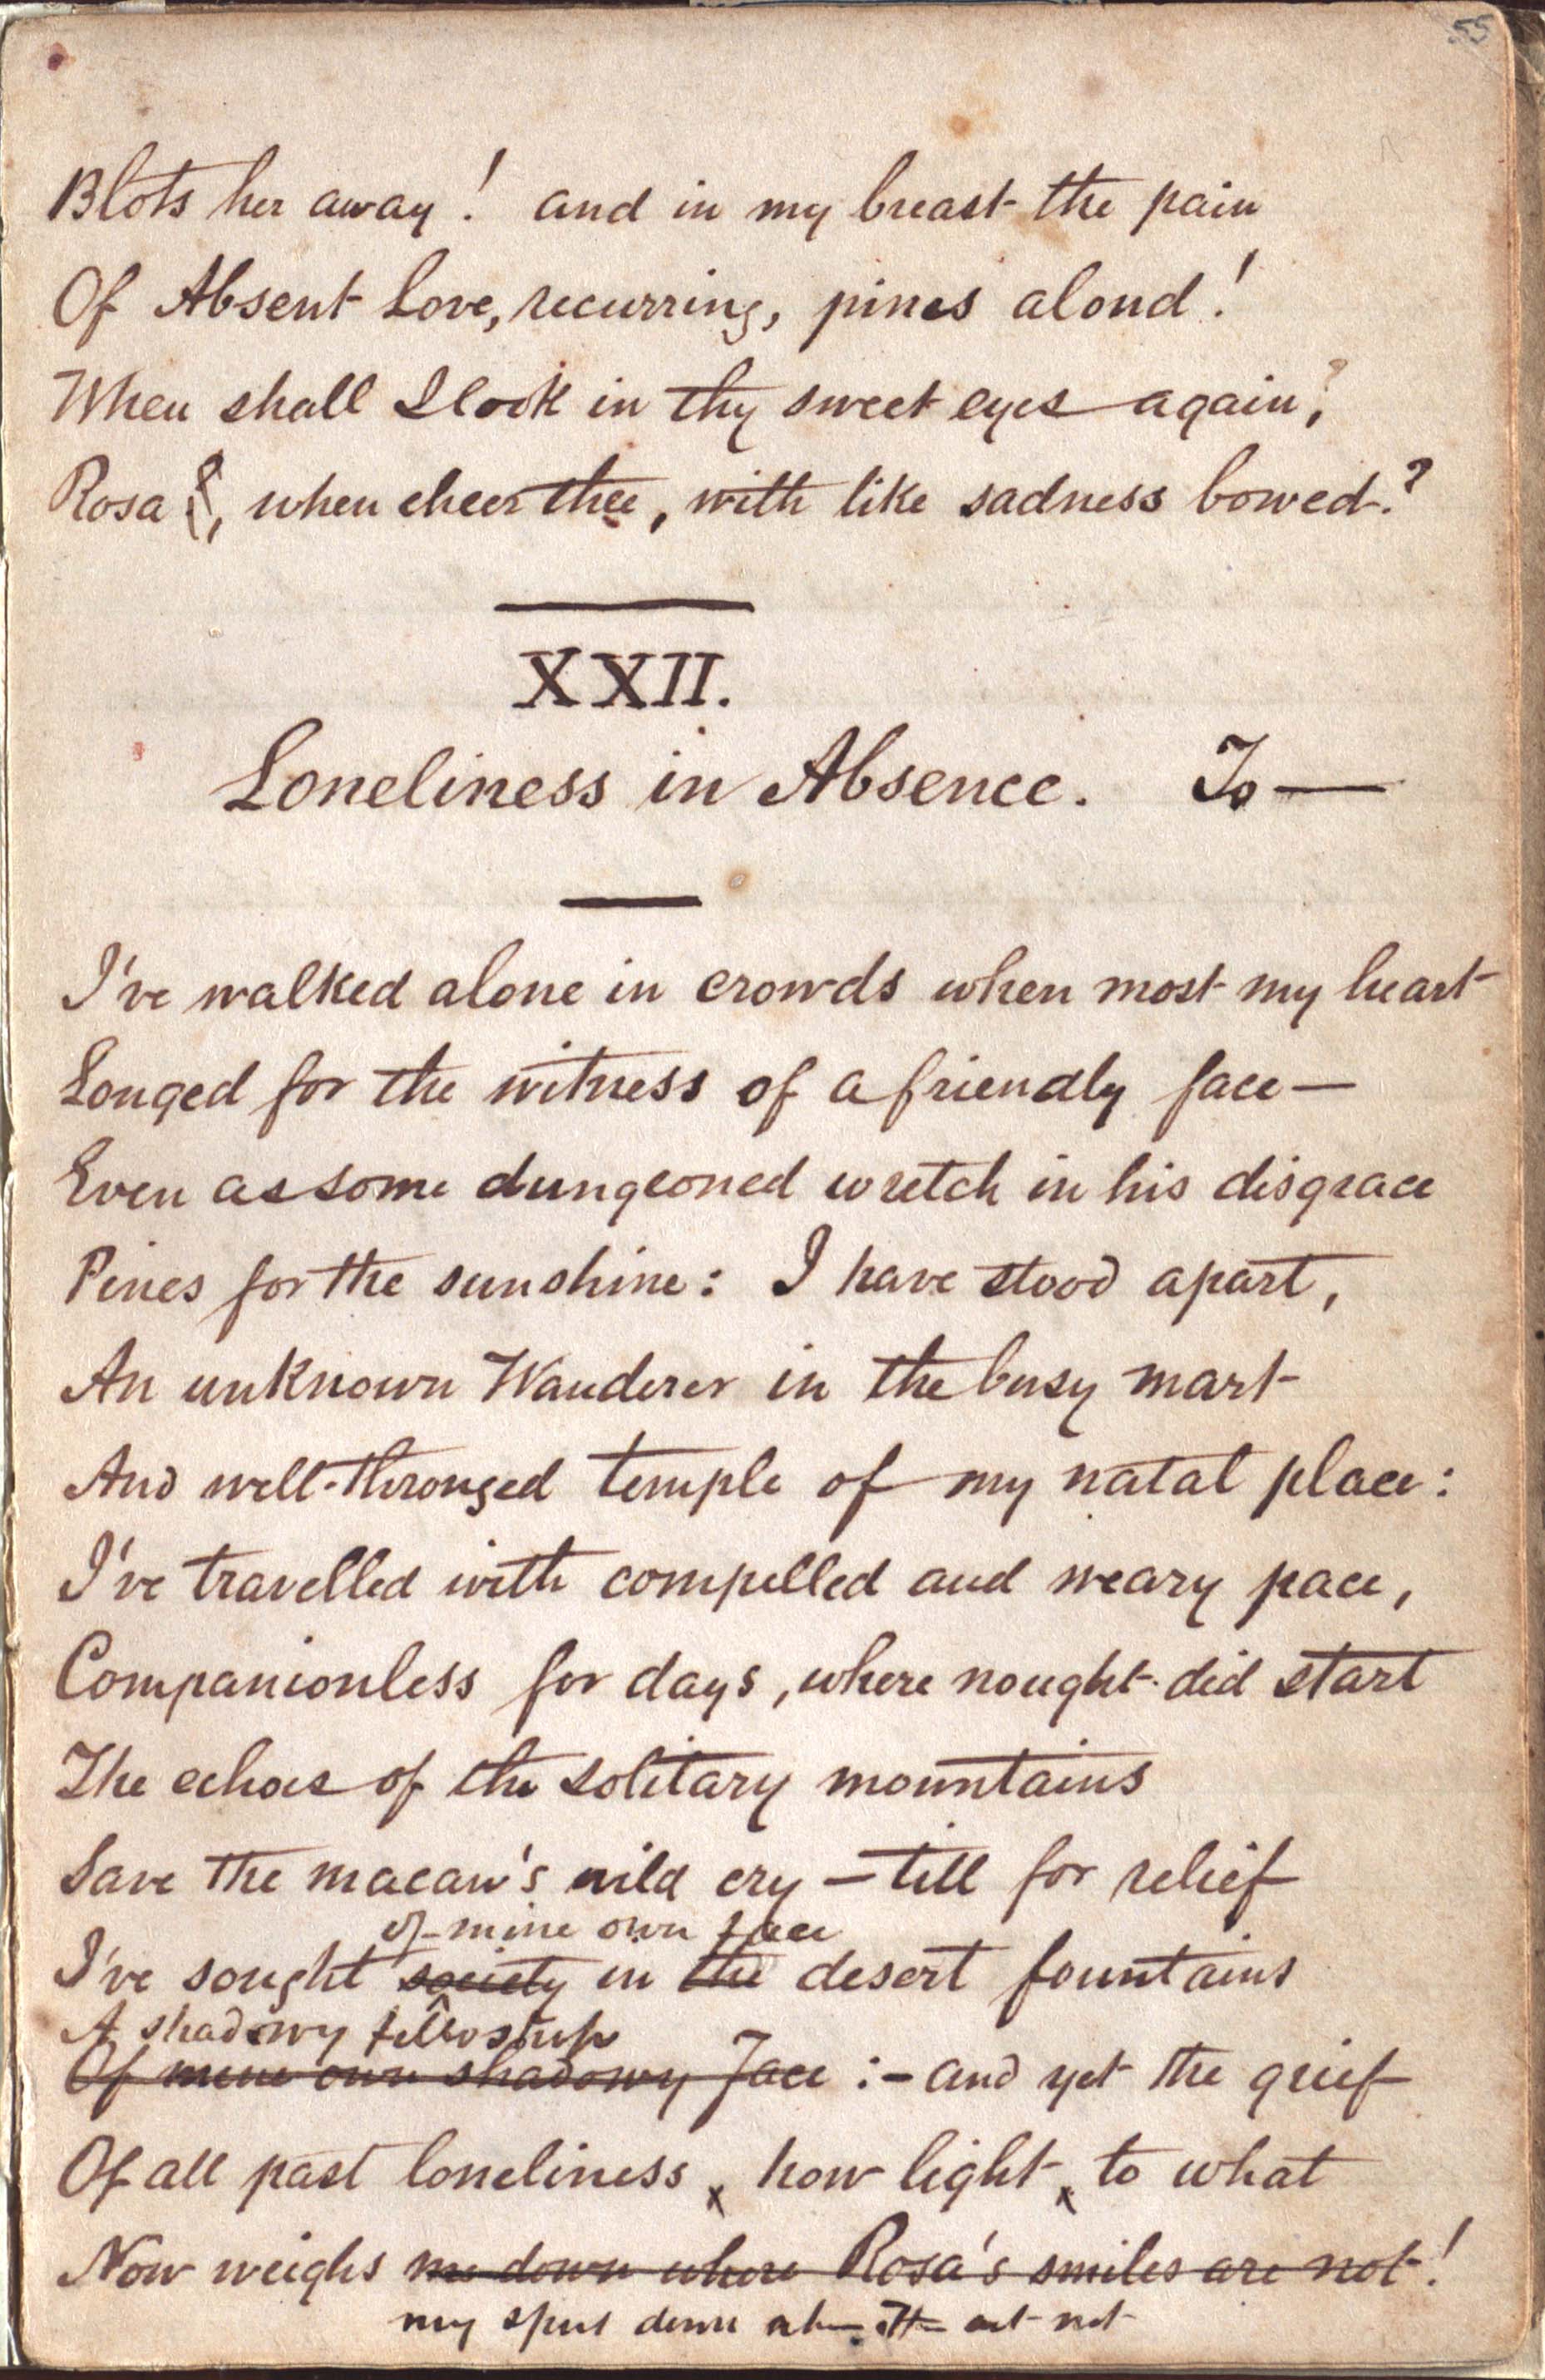 55
Blots her away! and in my breast the pain
Of Absent Love, recurring, pines aloud!
When shall I look in thy sweet eyes again,?
Rosa, when cheer thee, with like sadness bowed?
XXII.
Loneliness in Absence. To —
I've walked alone in crowds when most my heart
Longed for the witness of a friendly face —
Even as some dungeoned wretch in his disgrace
Pines for the sunshine: I have stood apart,
An unknown Wanderer in the busy mart
And well-thronged temple of my natal place:
I've travelled with compelled and weary pace,
Companionless for days, where nought did start
The echoes of the solitary mountains
Save the macaw's wild cry — till for relief
of mine own face
I've sought society in the desert fountains
A shadowy fellowship
Of mine own shadowy face :– and yet the grief
Of all past loneliness, how light, to what
Now weighs me down where Rosa's smiles are not!
my spirit down when thou art not